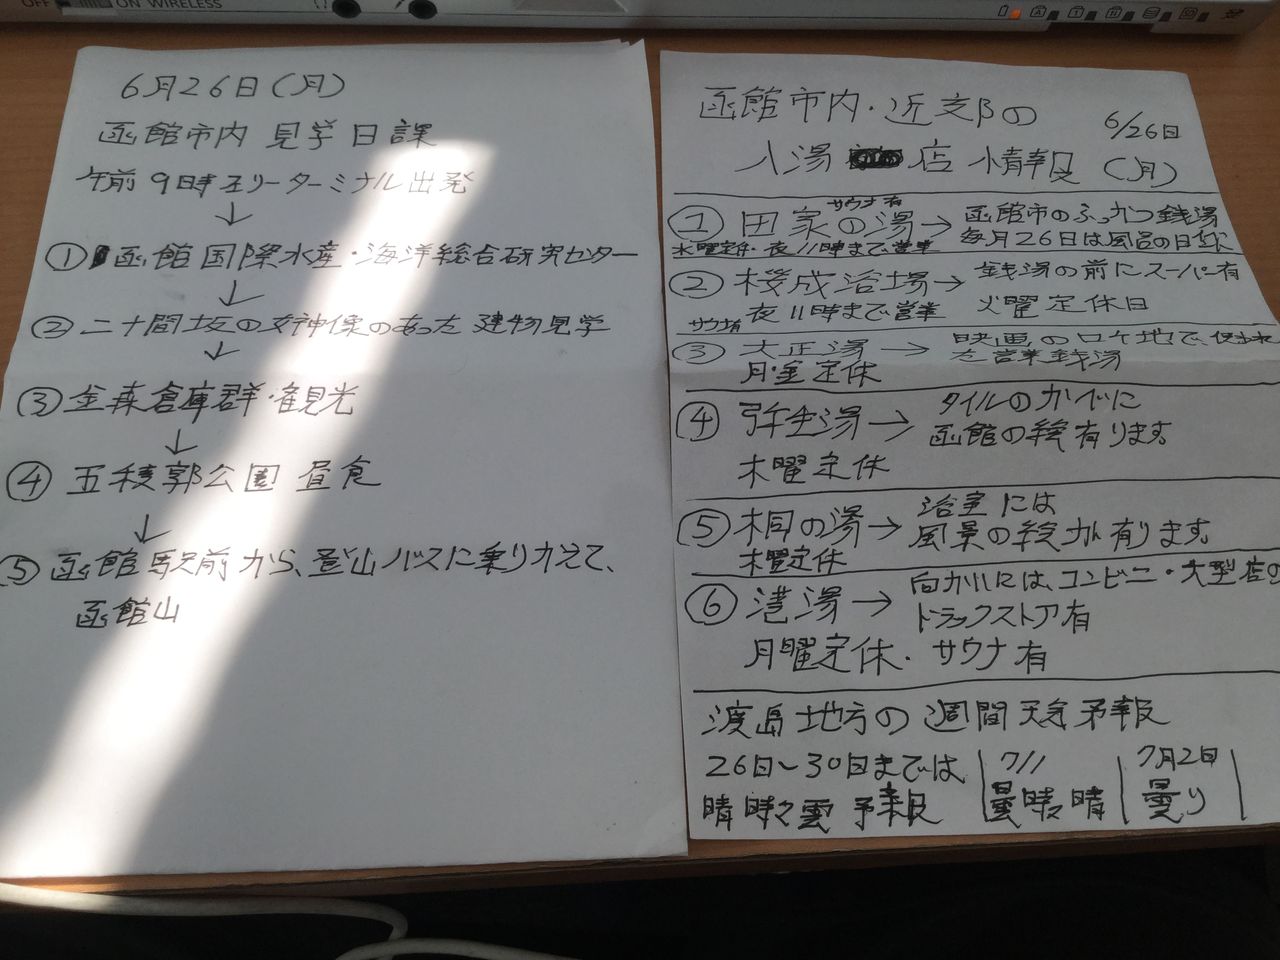 OFF ON WIRELESS
6月26日(月)
函館市内 見学日課
午前 9時 フェリーターミナル出発
↓
① 函館国際水産・海洋総合研究センター
↓
② 二十間坂の女神像のあった 建物見学
↓
③ 金森倉庫群・観光
↓
④ 五稜郭公園 昼食
↓
⑤ 函館駅前から、登山バスに乗りかえて、
函館山
函館市内・近郊の
6/26日
入湯 店 情報 (月)
① 田家の湯→ 函館市のふっかつ銭湯
サウナ有
水曜定休・夜11時まで営業 毎月26日は風呂の日
② 桜成浴場→ 銭湯の前にスーパー有
夜11時まで営業 火曜定休日
サウナ有
③ 大正湯→ 映画のロケ地で、
を営業銭湯
月・金定休
④ 弥生湯→ タイルのかべに
函館の絵有ります
木曜定休
⑤ 桐の湯→ 浴室には
風景の絵が有ります
木曜定休
⑥ 港湯→ 向かいには、コンビニ・大型店の
ドラックストア有
月曜定休・サウナ有
渡島地方の週間天気予報
26日〜30日までは 7/1 7月2日
晴時々雲予報 曇時々晴 曇り